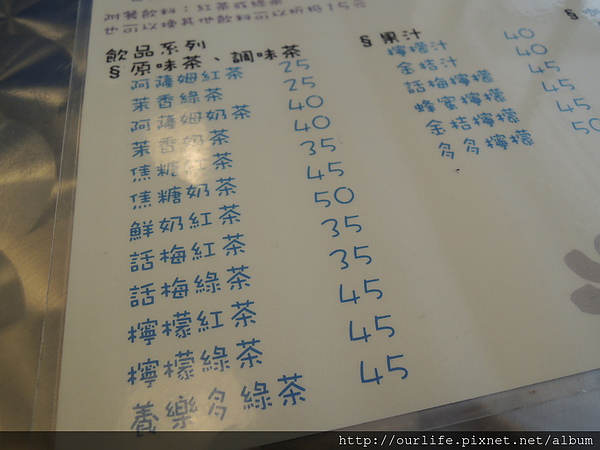 附餐飲料：紅茶或綠茶
也可以換其他飲料可以折抵15元
飲品系列
§原味茶、調味茶
阿薩姆紅茶 25
茉香綠茶 25
阿薩姆奶茶 40
茉香奶茶 40
焦糖紅茶 35
焦糖奶茶 45
鮮奶紅茶 50
話梅紅茶 35
話梅綠茶 35
檸檬紅茶 45
檸檬綠茶 45
養樂多綠茶 45
§果汁
檸檬汁 40
金桔汁 40
話梅檸檬 45
蜂蜜檸檬 45
金桔檸檬 45
多多檸檬 50
http://ourlife.pixnet.net/album